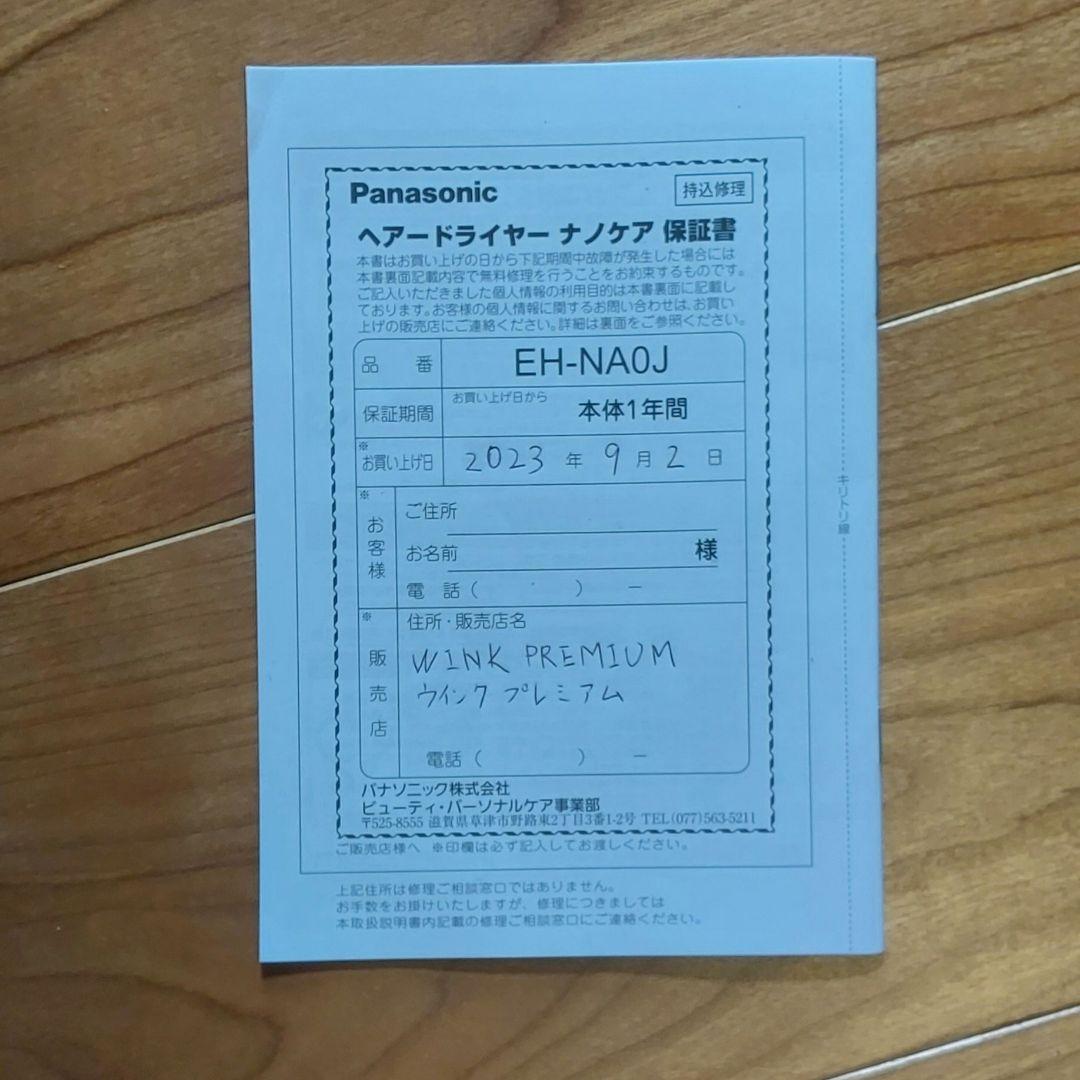 Panasonic
持込修理
ヘアードライヤー ナノケア 保証書
本書はお買い上げの日から下記期間中故障が発生した場合には
本書裏面記載内容で無料修理を行うことをお約束するものです。
ご記入いただきました個人情報の利用目的は本書裏面に記載し
ております。お客様の個人情報に関するお問い合わせは、お買い
上げの販売店にご連絡ください。詳細は裏面をご参照ください。
品 番 EH-NA0J
保証期間 お買い上げ日から 本体1年間
※お買い上げ日 2023 年 9 月 2 日
※お客様
ご住所
お名前 様
電 話 ( ) ー
※販売店
住所・販売店名
WINK PREMIUM
ウインク プレミアム
電話 ( ) ー
パナソニック株式会社
ビューティ・パーソナルケア事業部
〒525-8555 滋賀県草津市野路東2丁目3番1-2号 TEL(077)563-5211
ご販売店様へ ※印欄は必ず記入してお渡しください。
上記住所は修理ご相談窓口ではありません。
お手数をお掛けいたしますが、修理につきましては
本取扱説明書内記載の修理ご相談窓口にご連絡ください。
キリトリ線